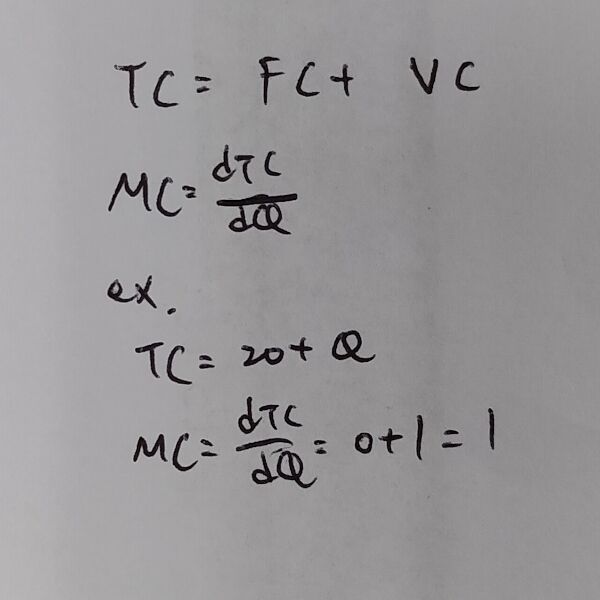 TC = FC + VC
MC = dTC/dQ
ex.
TC = 20 + Q
MC = dTC/dQ = 0 + 1 = 1